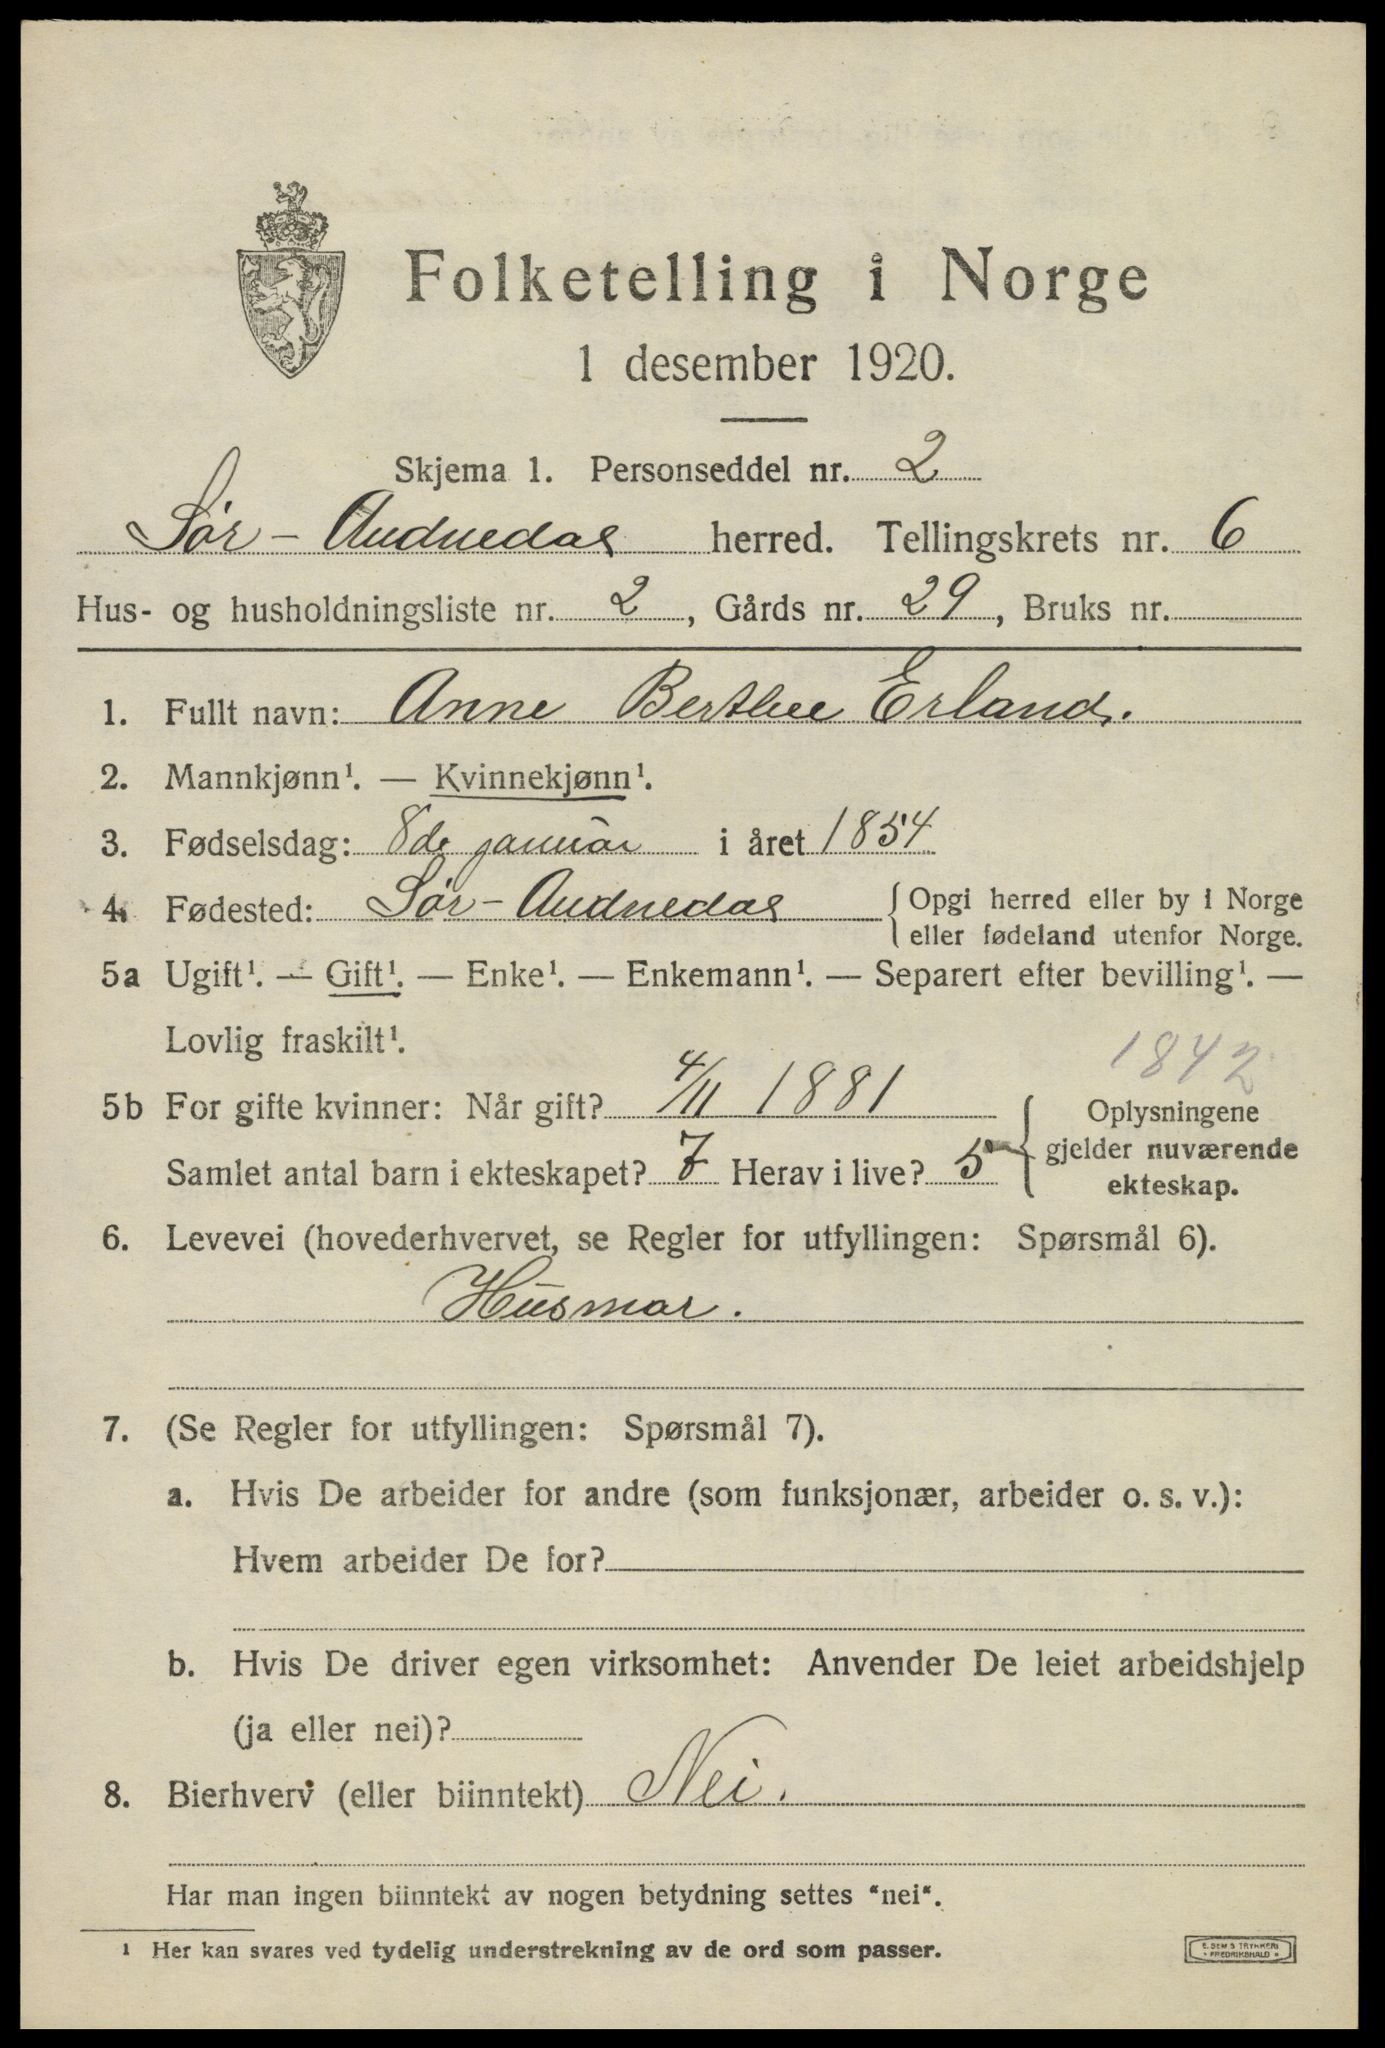 Folketelling i Norge
1 desember 1920.
Skjema 1. Personseddel nr. 2
Sør-Audnedal herred. Tellingskrets nr. 6
Hus- og husholdningsliste nr. 2, Gårds nr. 29, Bruks nr.
1. Fullt navn: Anne Berthee Erland.
2. Mannkjønn¹. — Kvinnekjønn¹.
3. Fødselsdag: 8de januar i året 1854
4. Fødested: Sør-Audnedal {Opgi herred eller by i Norge
eller fødeland utenfor Norge.
5a Ugift¹. — Gift¹. — Enke¹. — Enkemann¹. — Separert efter bevilling¹. —
Lovlig fraskilt¹.
1842
5b For gifte kvinner: Når gift? 4/11 1881
Samlet antal barn i ekteskapet? 7 Herav i live? 5
{Oplysningene
gjelder nuværende
ekteskap.
6. Levevei (hovederhvervet, se Regler for utfyllingen: Spørsmål 6).
Husmor.
7. (Se Regler for utfyllingen: Spørsmål 7).
a. Hvis De arbeider for andre (som funksjonær, arbeider o. s. v.):
Hvem arbeider De for?
b. Hvis De driver egen virksomhet: Anvender De leiet arbeidshjelp
(ja eller nei)?
8. Bierhverv (eller biinntekt) Nei.
Har man ingen biinntekt av nogen betydning settes "nei".
¹ Her kan svares ved tydelig understrekning av de ord som passer.
E. SEM'S TRYKKERI
• FREDRIKSHALD •